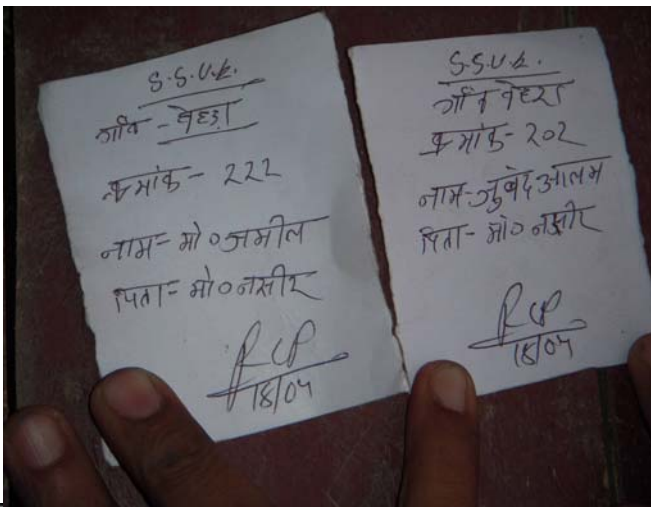 S.S.V.K.
गाँव - बेहड़ा
क्रमांक - २२२
नाम = मो० जमील
पिता = मो० नसीर
RCP
18/04
S.S.V.K.
गाँव बेहरा
क्रमांक - २०२
नाम - जुबेद आलम
पिता - मो० नसीर
RCP
18/04